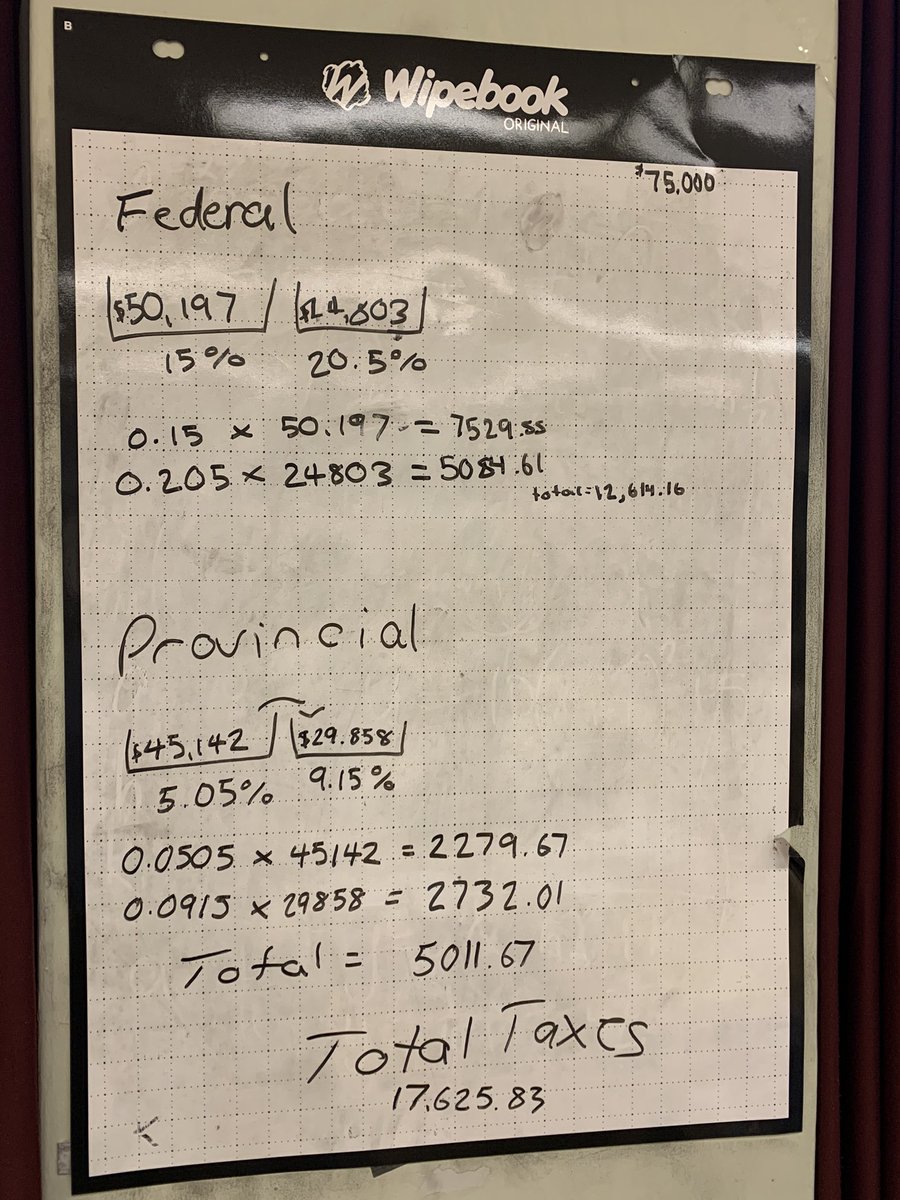 B
Wipebook
ORIGINAL
$75,000
Federal
$50,197 $24,803
15% 20.5%
0.15 × 50,197 = 7529.55
0.205 × 24803 = 5084.61
total=12,614.16
Provincial
$45,142 $29.858
5.05% 9.15%
0.0505 × 45142 = 2279.67
0.0915 × 29858 = 2732.01
Total = 5011.67
Total Taxes
17,625.83